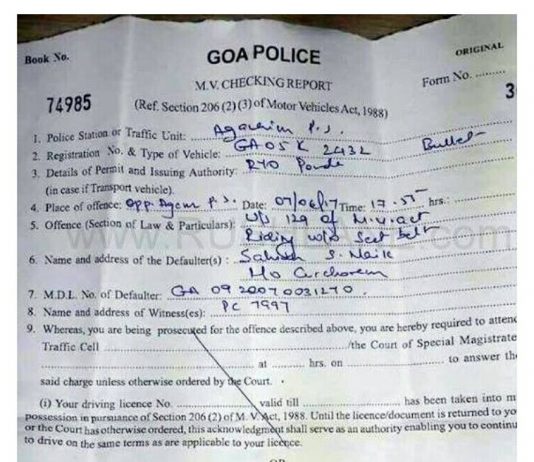 Book No.
GOA POLICE
ORIGINAL
M.V. CHECKING REPORT
Form No. ..........
74985
(Ref. Section 206 (2) (3) of Motor Vehicles Act, 1988)
3
1. Police Station or Traffic Unit: Agacaim P.S.
2. Registration No. & Type of Vehicle: GA 05 K 2432 Bullet
3. Details of Permit and Issuing Authority: RTO Ponda
(in case if Transport vehicle).
4. Place of offence: opp. Agacaim P.S. Date: 07/06/17 Time: 17.55 hrs.:
5. Offence (Section of Law & Particulars): U/s 129 of M.V. act
Riding w/o Seat belt
6. Name and address of the Defaulter(s) : S. Naik
r/o Curchorem
7. M.D.L. No. of Defaulter: GA 09 20070031270.
8. Name and address of Witness(es): PC 7997
9. Whereas, you are being prosecuted for the offence described above, you are hereby required to attend
Traffic Cell ............ /the Court of Special Magistrate
............ at ......... hrs. on ............ to answer the
said charge unless otherwise ordered by the Court.
(i) Your driving licence No. ............ valid till ............ has been taken into m
possession in pursuance of Section 206 (2) of M. V. Act, 1988. Until the licence/document is returned to yo
or the Court has otherwise ordered, this acknowledgment shall serve as an authority enabling you to continu
to drive on the same terms as are applicable to your licence.
OR